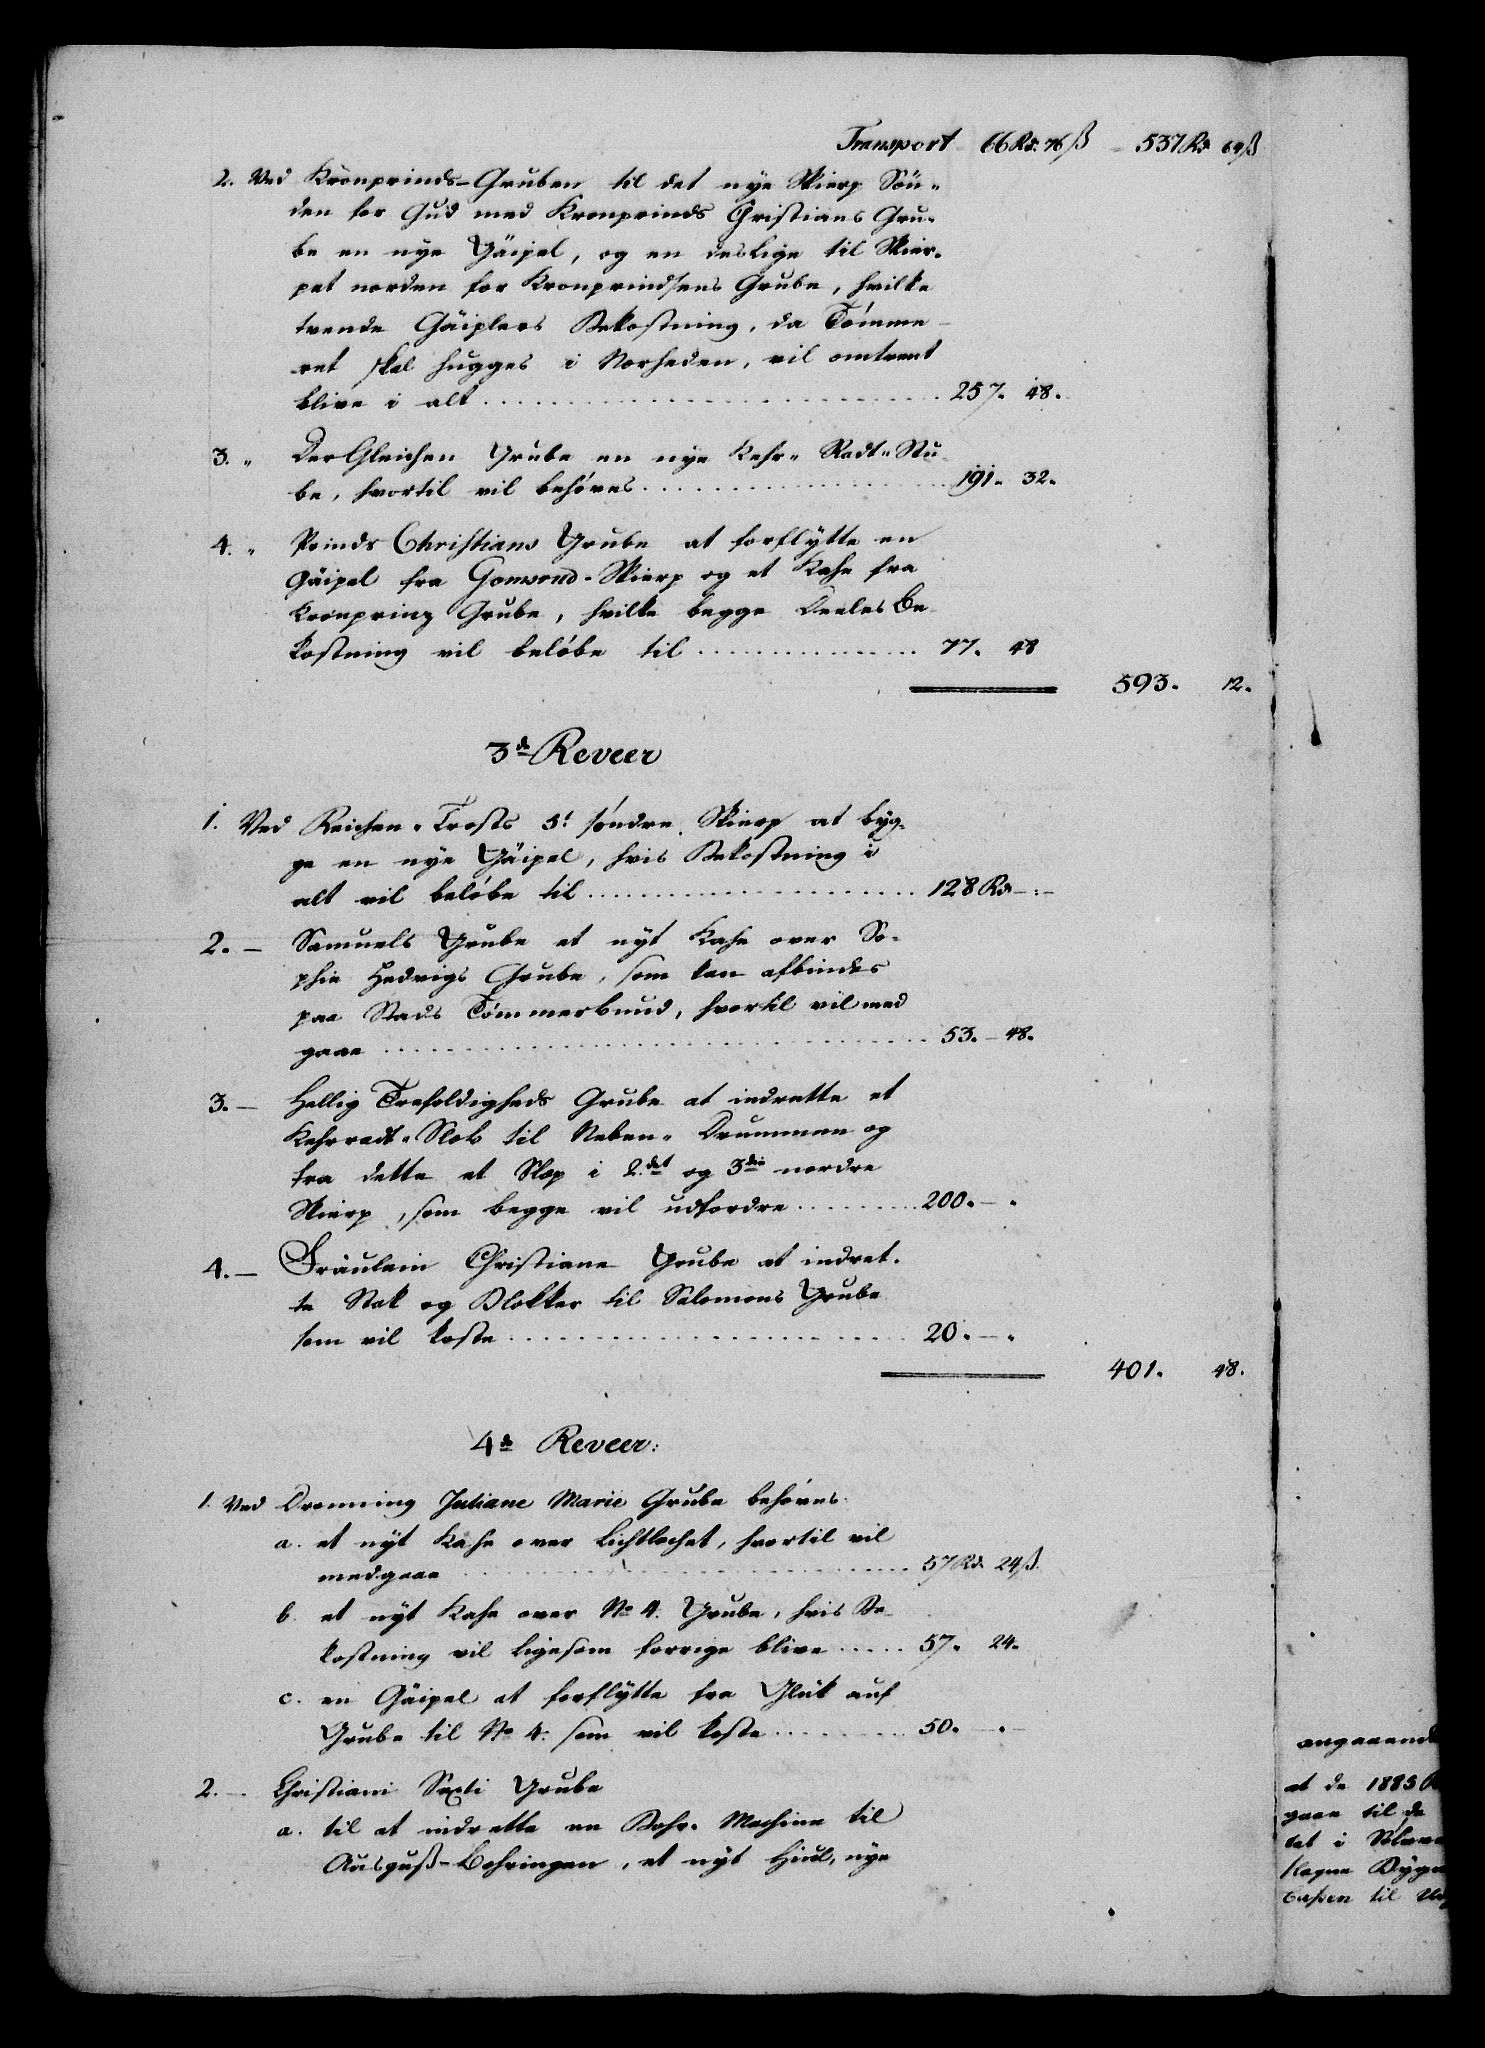 Transport 66 Rd. 76 ß – 537 Rd 64 ß
2. Ved Kronprinds-Gruben til det nye Skierp Sön-
den for Gud med Kronprinds Christians Gru-
be en nye Gäipel, og en deslige til Skier-
pet norden for Kronprindsens Grube, hvilke
tvende Gäiplers Bekostning, da Tømme-
ret skal hugges i Norheden, vil omtrent
blive i alt 257. 48.
3. " Der Gleichen Grube en nye Kehr-Radt-Stu-
be, hvortil vil behøves 191. 32.
4. " Prinds Christians Grube at forflytte en
Gäipel fra Skierp og et Kahe fra
Kronprinz Grube, hvilke begge Deeles Be-
kostning vil beløbe til 77. 48
593. 12.
3de Reveer
1. Ved Reichen-Trosts 5t søndre Skierp at byg-
ge en nye Gäipel, hvis Bekostning i
alt vil beløbe til 128 Rd – : –
2. – Samuels Grube et nyt Kahe over So-
phie Hedvigs Grube, som kan afbindes
paa Stads Tømmerbund, hvortil vil med
gaae 53. – 48.
3. – Hellig Trefoldigheds Grube at indrette et
Kehrradt-Slob til Neben-Drummen og
fra dette et Slep i 2det og 3die nordre
Skierp, som begge vil udfordre 200. – .
4. – Fräulein Christiane Grube at indret-
te Stok og Blokker til Salomons Grube
som vil koste 20. – .
401. 48.
4de Reveer:
1. Ved Dronning Juliane Marie Grube behøves
a. et nyt Kahe over Lichtlochet, hvortil vil
medgaae 57 Rd. 24 ß.
b. et nyt Kahe over No 4. Grube, hvis Be-
kostning vil ligesom forrige blive 57. 24.
c. en Gäipel at forflytte fra Glük auf
Grube til No 4. som vil koste 50. – . –
2. – Christiani Sexti Grube
a. til at indrette en Bohr-Machine til
Ausguß-Bohringen, et nyt Hiul, nye
angaaende
at de 1885
gaae til de
tet i
Bygn
Cassen til